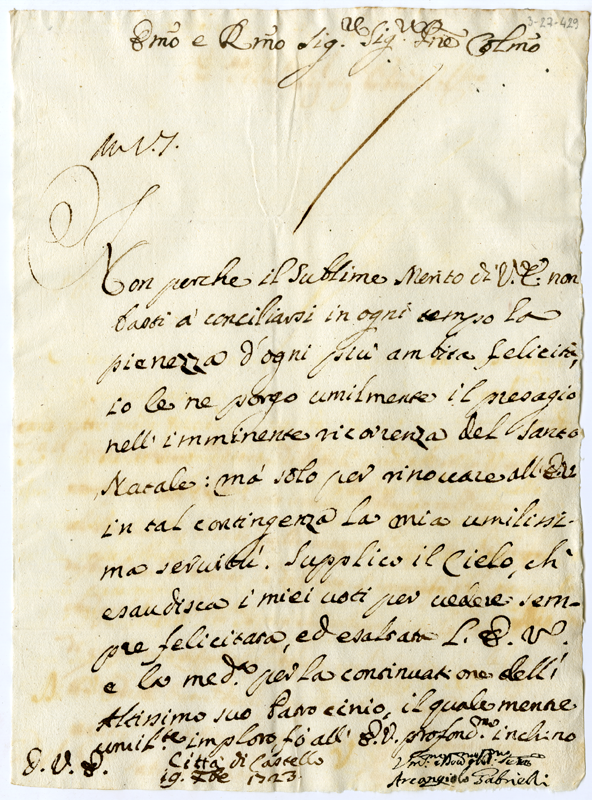 3-27-429
Emo e Rmo Sig.re Sig.r Pne Colmo
Non perche il Sublime Merito di V. E. non
basti à conciliarsi in ogni tempo la
pienezza d'ogni più ambita felicità,
io le ne porgo umilmente il presagio
nell'imminente ricorrenza del Santo
Natale: mà solo per rinovare all'
in tal contingenza la mia umilissi-
ma servitù. Supplico il Cielo, ch'
esaudisca i miei voti per vedere sem-
pre felicitata, ed esaltata L. E. V.
e la med.a per la continuatione dell'
Altissimo suo Patrocinio, il quale mentre
umil.te imploro, fò all' E. V. profond.mo inchino
E. V. E.
Città di Castello
19. Xbre 1723
Arcangiolo Gabrielli